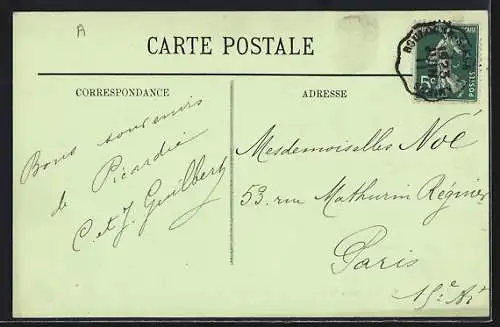 A
CARTE POSTALE
CORRESPONDANCE
ADRESSE
Bons souvenirs
de Picardie
C. et J. Guilbert
Mesdemoiselles Noé
53, rue Mathurin Régnier
Paris
15e Ar
5c
POSTES